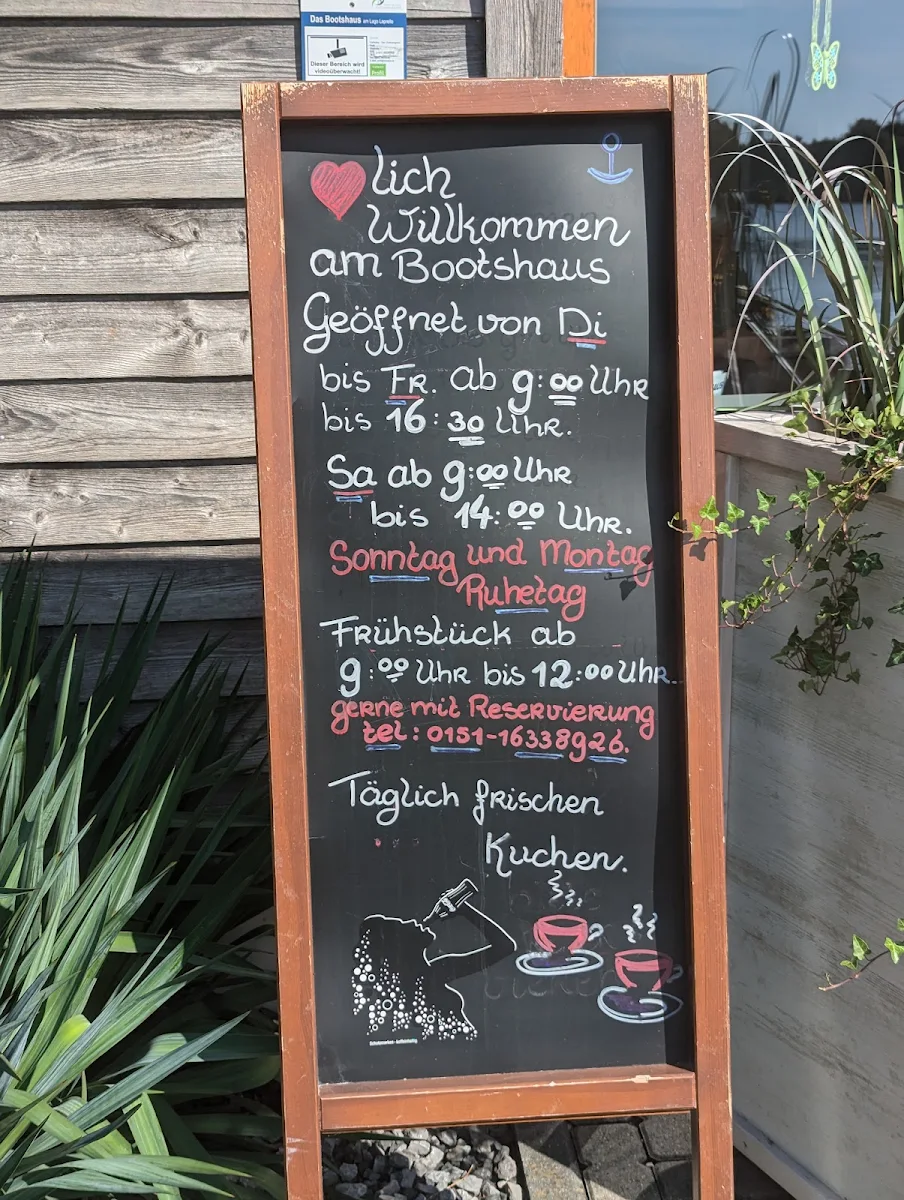 Das Bootshaus am Lago Laprello
Dieser Bereich wird
videoüberwacht!
lich
Willkommen
am Bootshaus
Geöffnet von Di
bis FR. ab 9:00 Uhr
bis 16:30 Uhr.
Sa ab 9:00 Uhr
bis 14:00 Uhr.
Sonntag und Montag
Ruhetag
Frühstück ab
9:00 Uhr bis 12:00 Uhr.
gerne mit Reservierung
tel: 0151-16338926.
Täglich frischen
Kuchen.